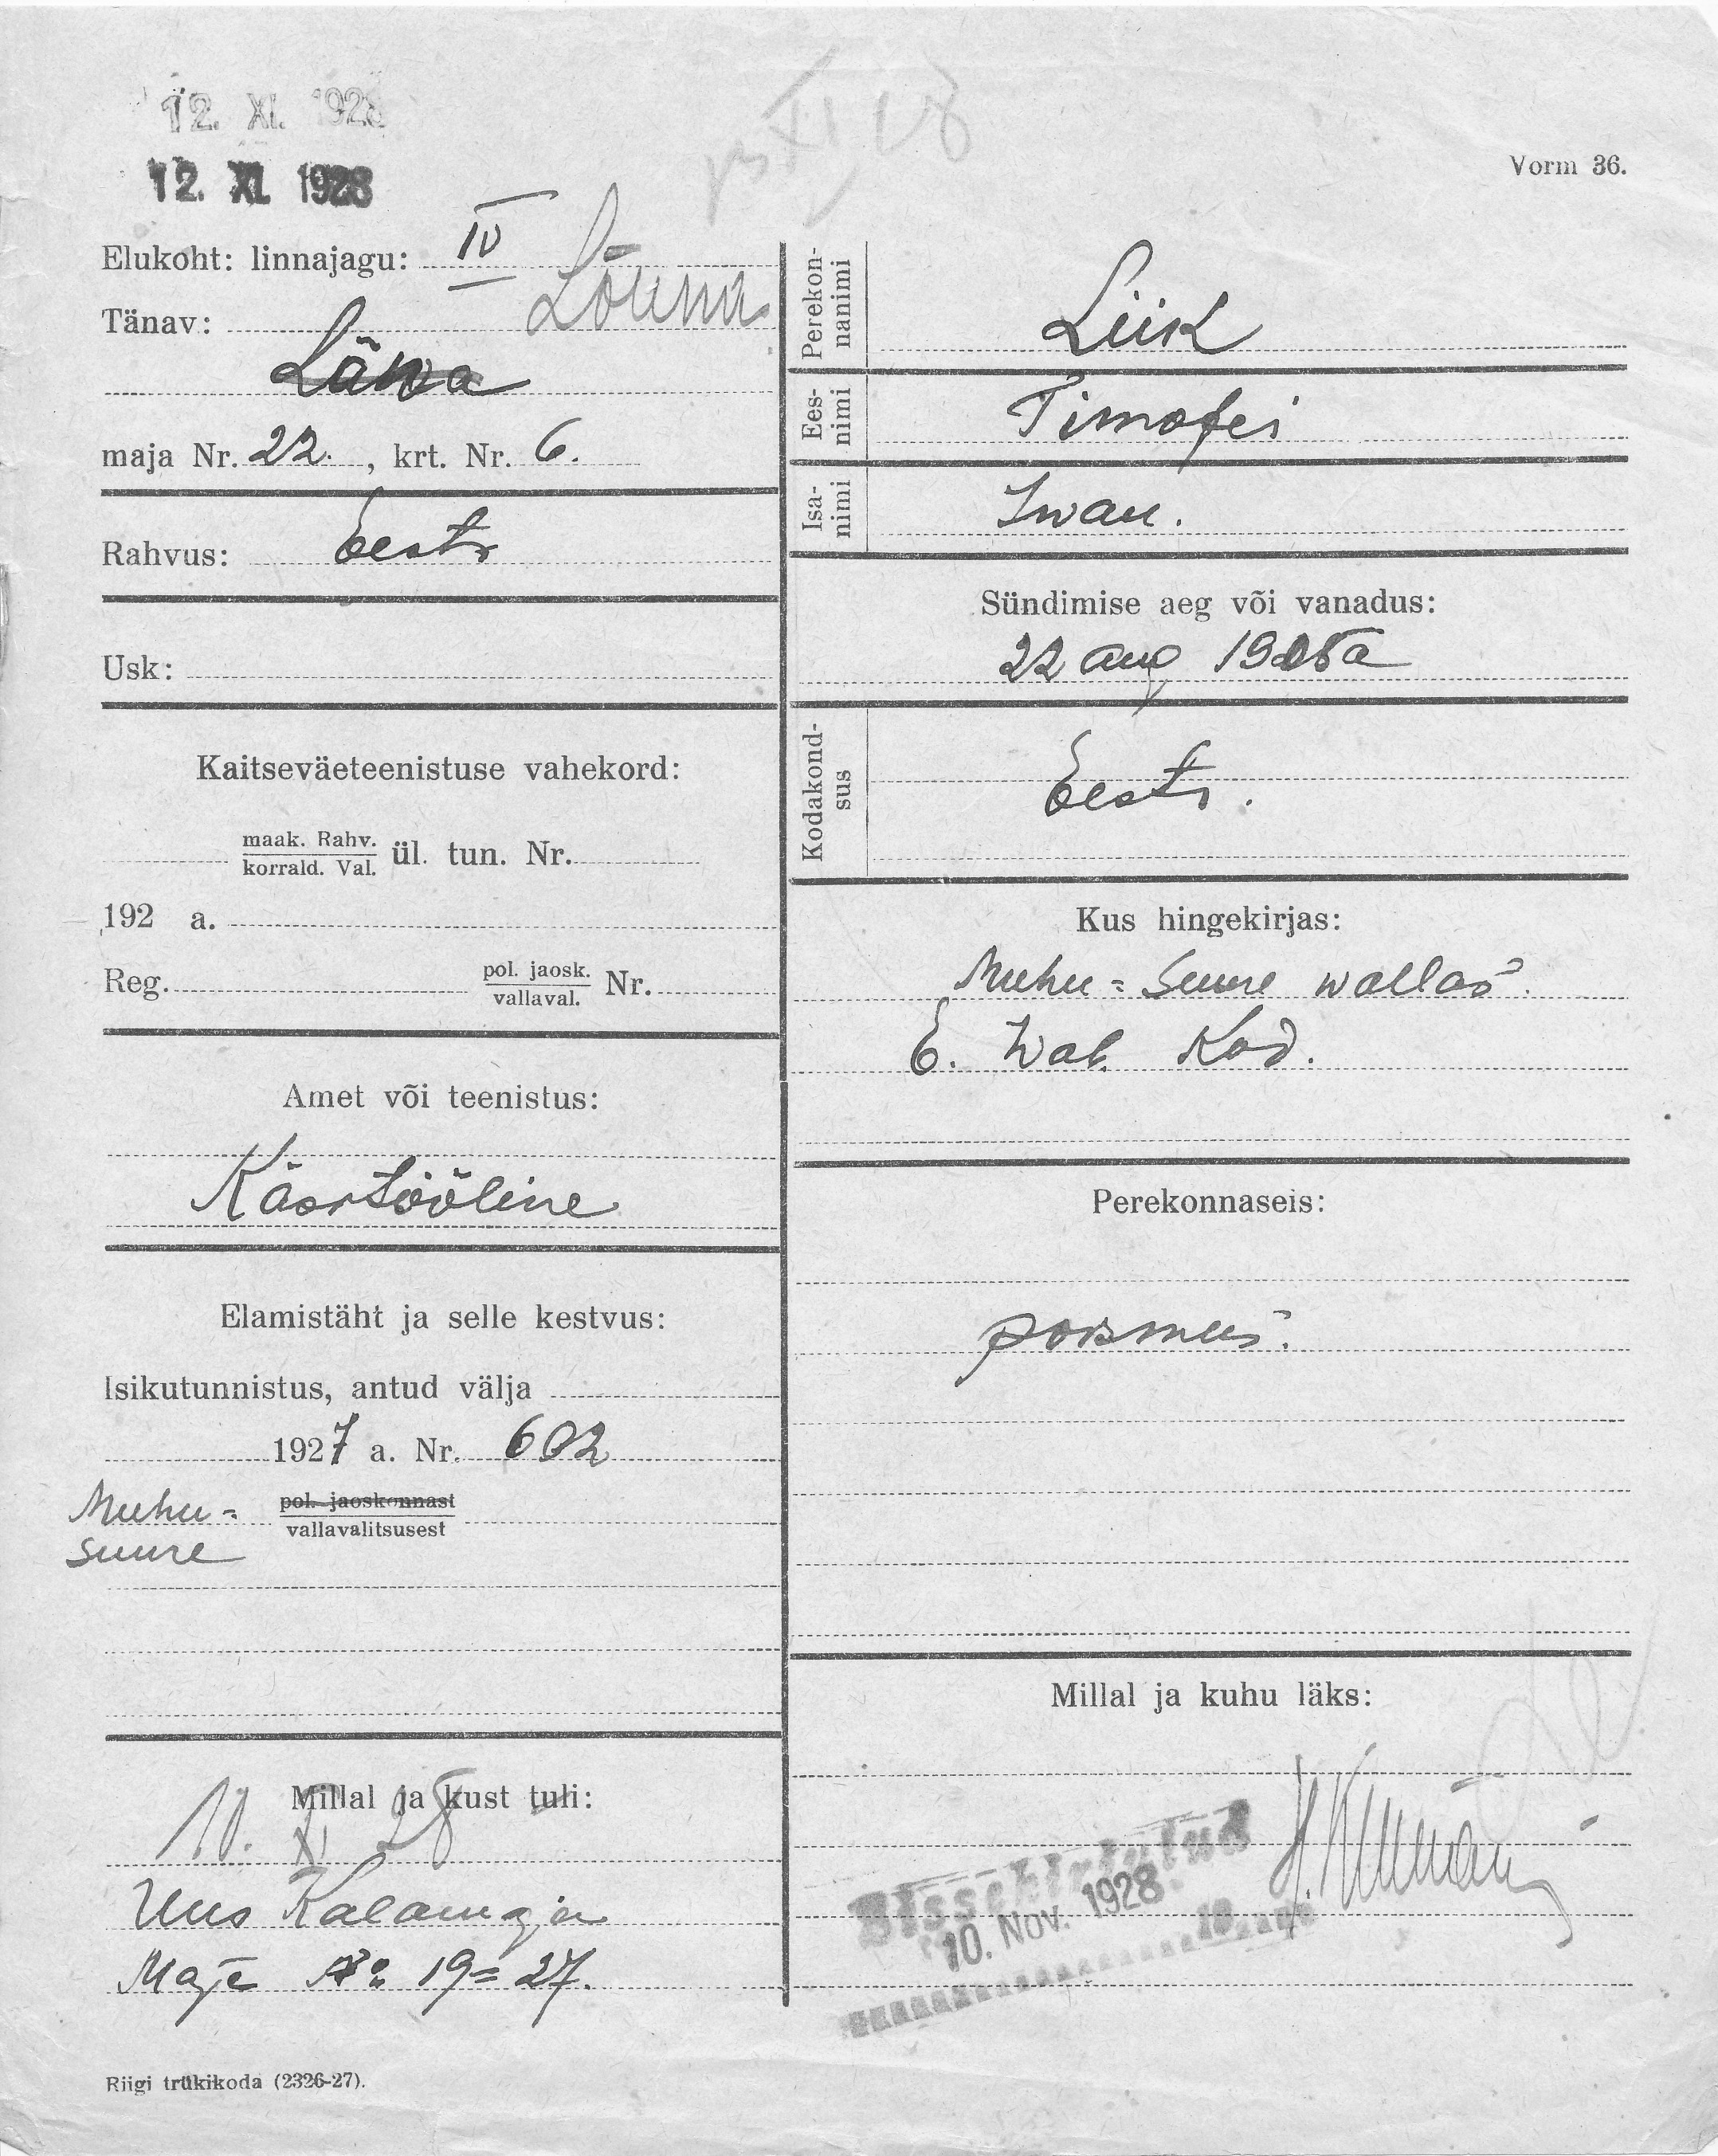 12. XI. 1928
12. XI. 1928
XI 28
Vorm 36.
Elukoht: linnajagu: IV
Lõuna
Tänav:
Läwa
maja Nr. 22. , krt. Nr. 6.
Rahvus: Eesti
Usk:
Kaitseväeteenistuse vahekord:
maak. Rahv.
korrald. Val. ül. tun. Nr.
192 a.
Reg. pol. jaosk.
vallaval. Nr.
Amet või teenistus:
Käsitööline
Elamistäht ja selle kestvus:
Isikutunnistus, antud välja
1927 a. Nr. 602
Muhu= pol. jaoskonnast
suure vallavalitsusest
Millal ja kust tuli:
10. XI 28
Uus Kalamaja
Maja No 19=27.
Perekon-
nanimi
Liik
Ees-
nimi
Timofei
Isa-
nimi
Iwan.
Sündimise aeg või vanadus:
22 aug 1905 a
Kodakond-
sus
Eesti.
Kus hingekirjas:
Muhu=Suure wallas.
E. Wab. Kod.
Perekonnaseis:
poismees.
Millal ja kuhu läks:
Sissekirjutud
10. Nov. 1928
Riigi trükikoda (2326-27).